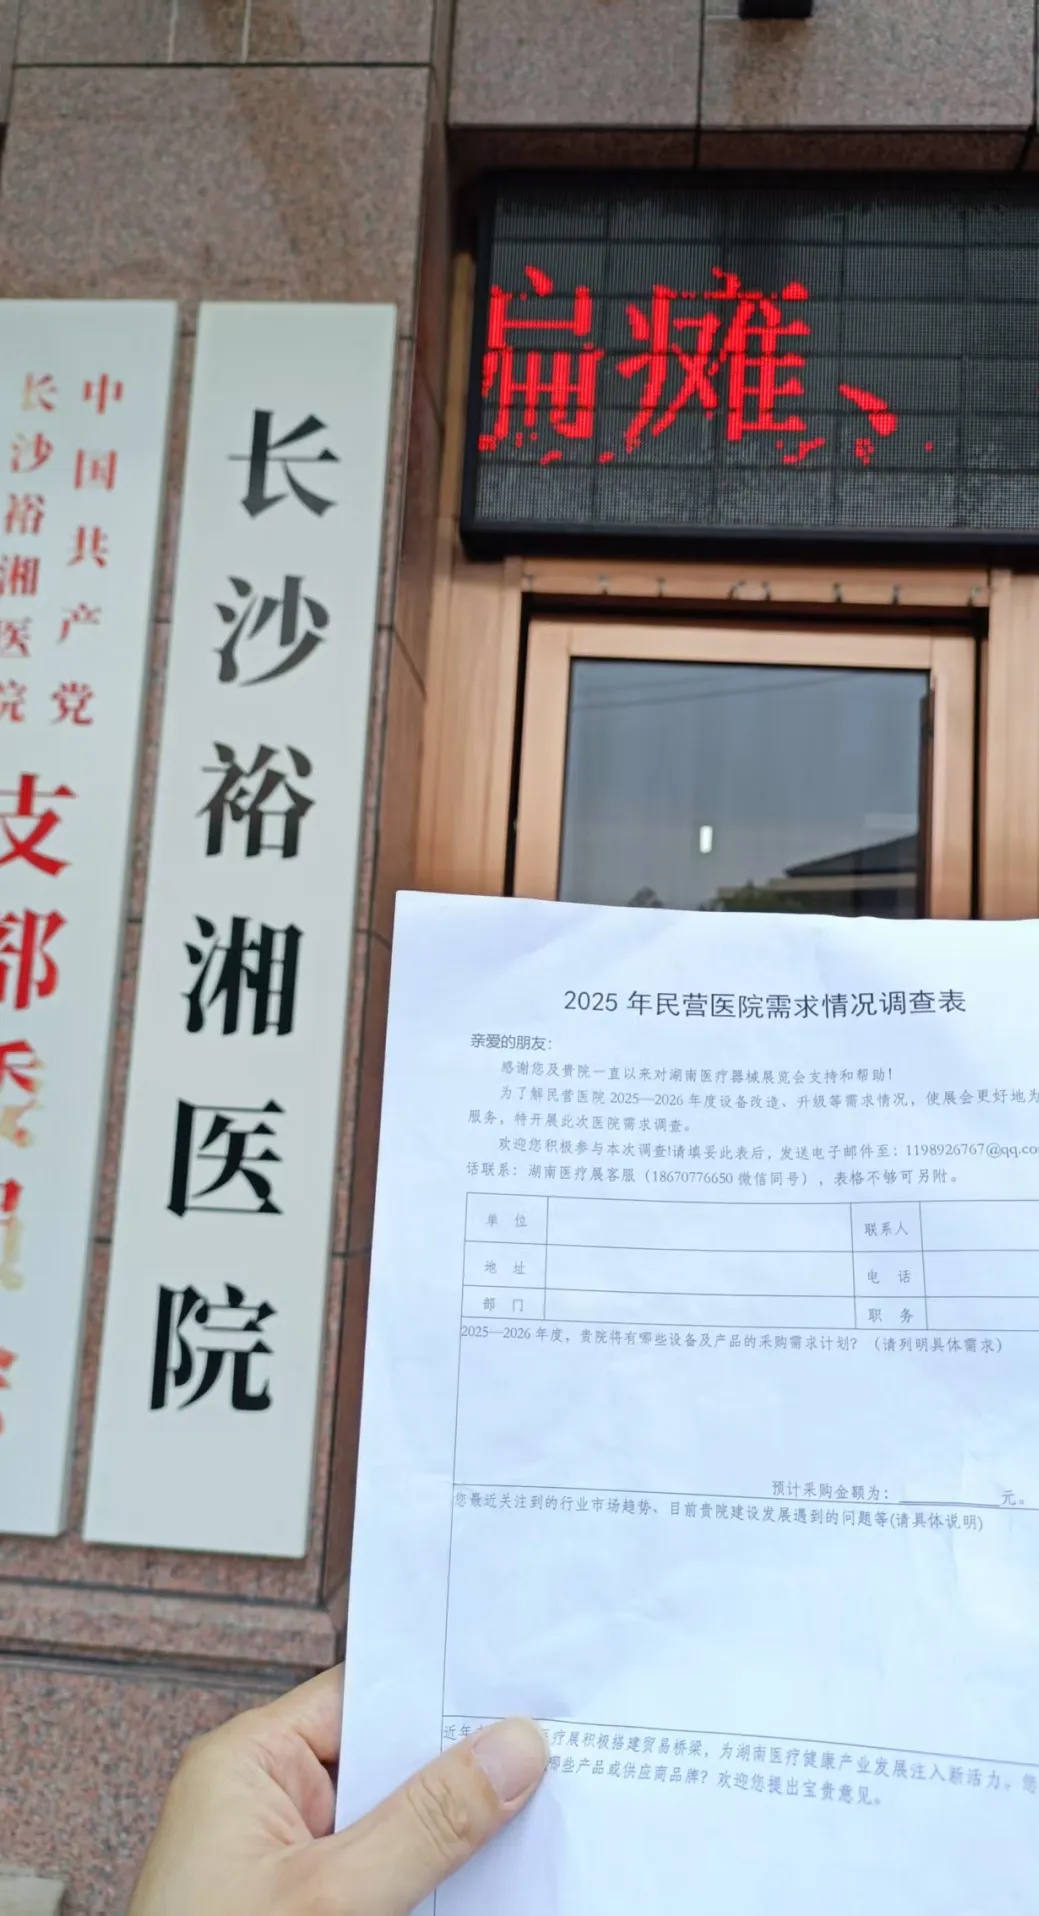 中国共产党
长沙裕湘医院
支部
长沙裕湘医院
扁瘫、
2025 年民营医院需求情况调查表
亲爱的朋友：
感谢您及贵院一直以来对湖南医疗器械展览会支持和帮助！
为了解民营医院 2025—2026 年度设备改造、升级等需求情况，使展会更好地为
服务，特开展此次医院需求调查。
欢迎您积极参与本次调查!请填妥此表后，发送电子邮件至：1198926767@qq.co
话联系：湖南医疗展客服（18670776650 微信同号），表格不够可另附。
单 位
联系人
地 址
电 话
部 门
职 务
2025—2026 年度，贵院将有哪些设备及产品的采购需求计划？（请列明具体需求）
预计采购金额为：________元。
您最近关注到的行业市场趋势、目前贵院建设发展遇到的问题等(请具体说明)
近年 医疗展积极搭建贸易桥梁，为湖南医疗健康产业发展注入新活力。您
哪些产品或供应商品牌？欢迎您提出宝贵意见。